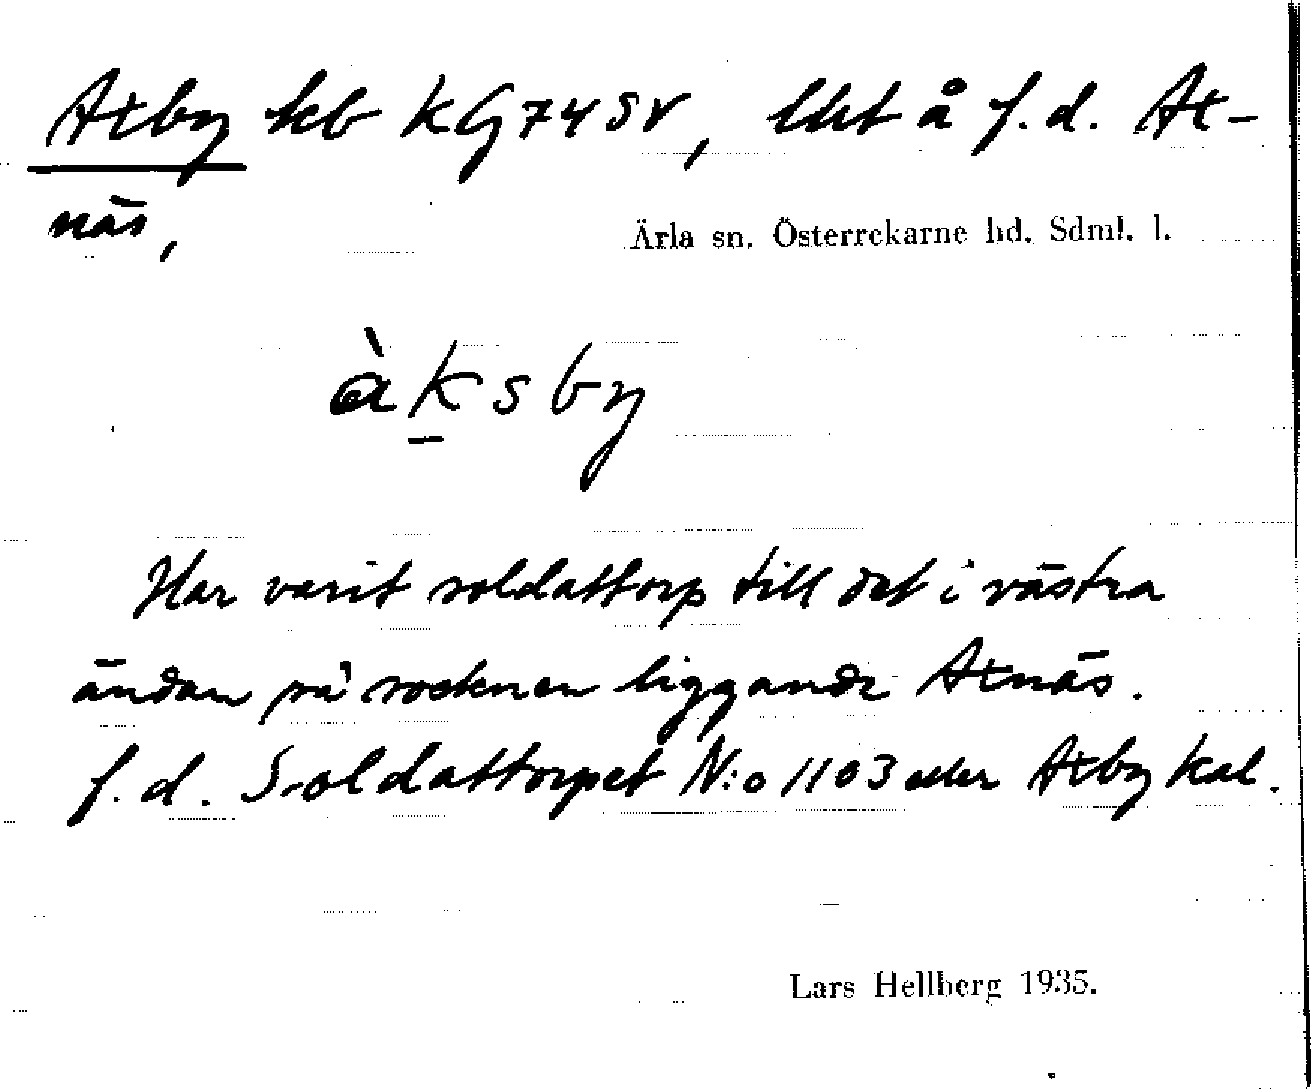 Axby lhb KG74SV, lht å f.d. Ax-
näs,
Ärla sn. Österrekarne hd. Sdml. l.
àksby
Har varit soldattorp till det i västra
ändan på socknen liggande Axnäs.
f.d. Soldattorpet N:o 1103 eller Axby kal.
Lars Hellberg 1935.